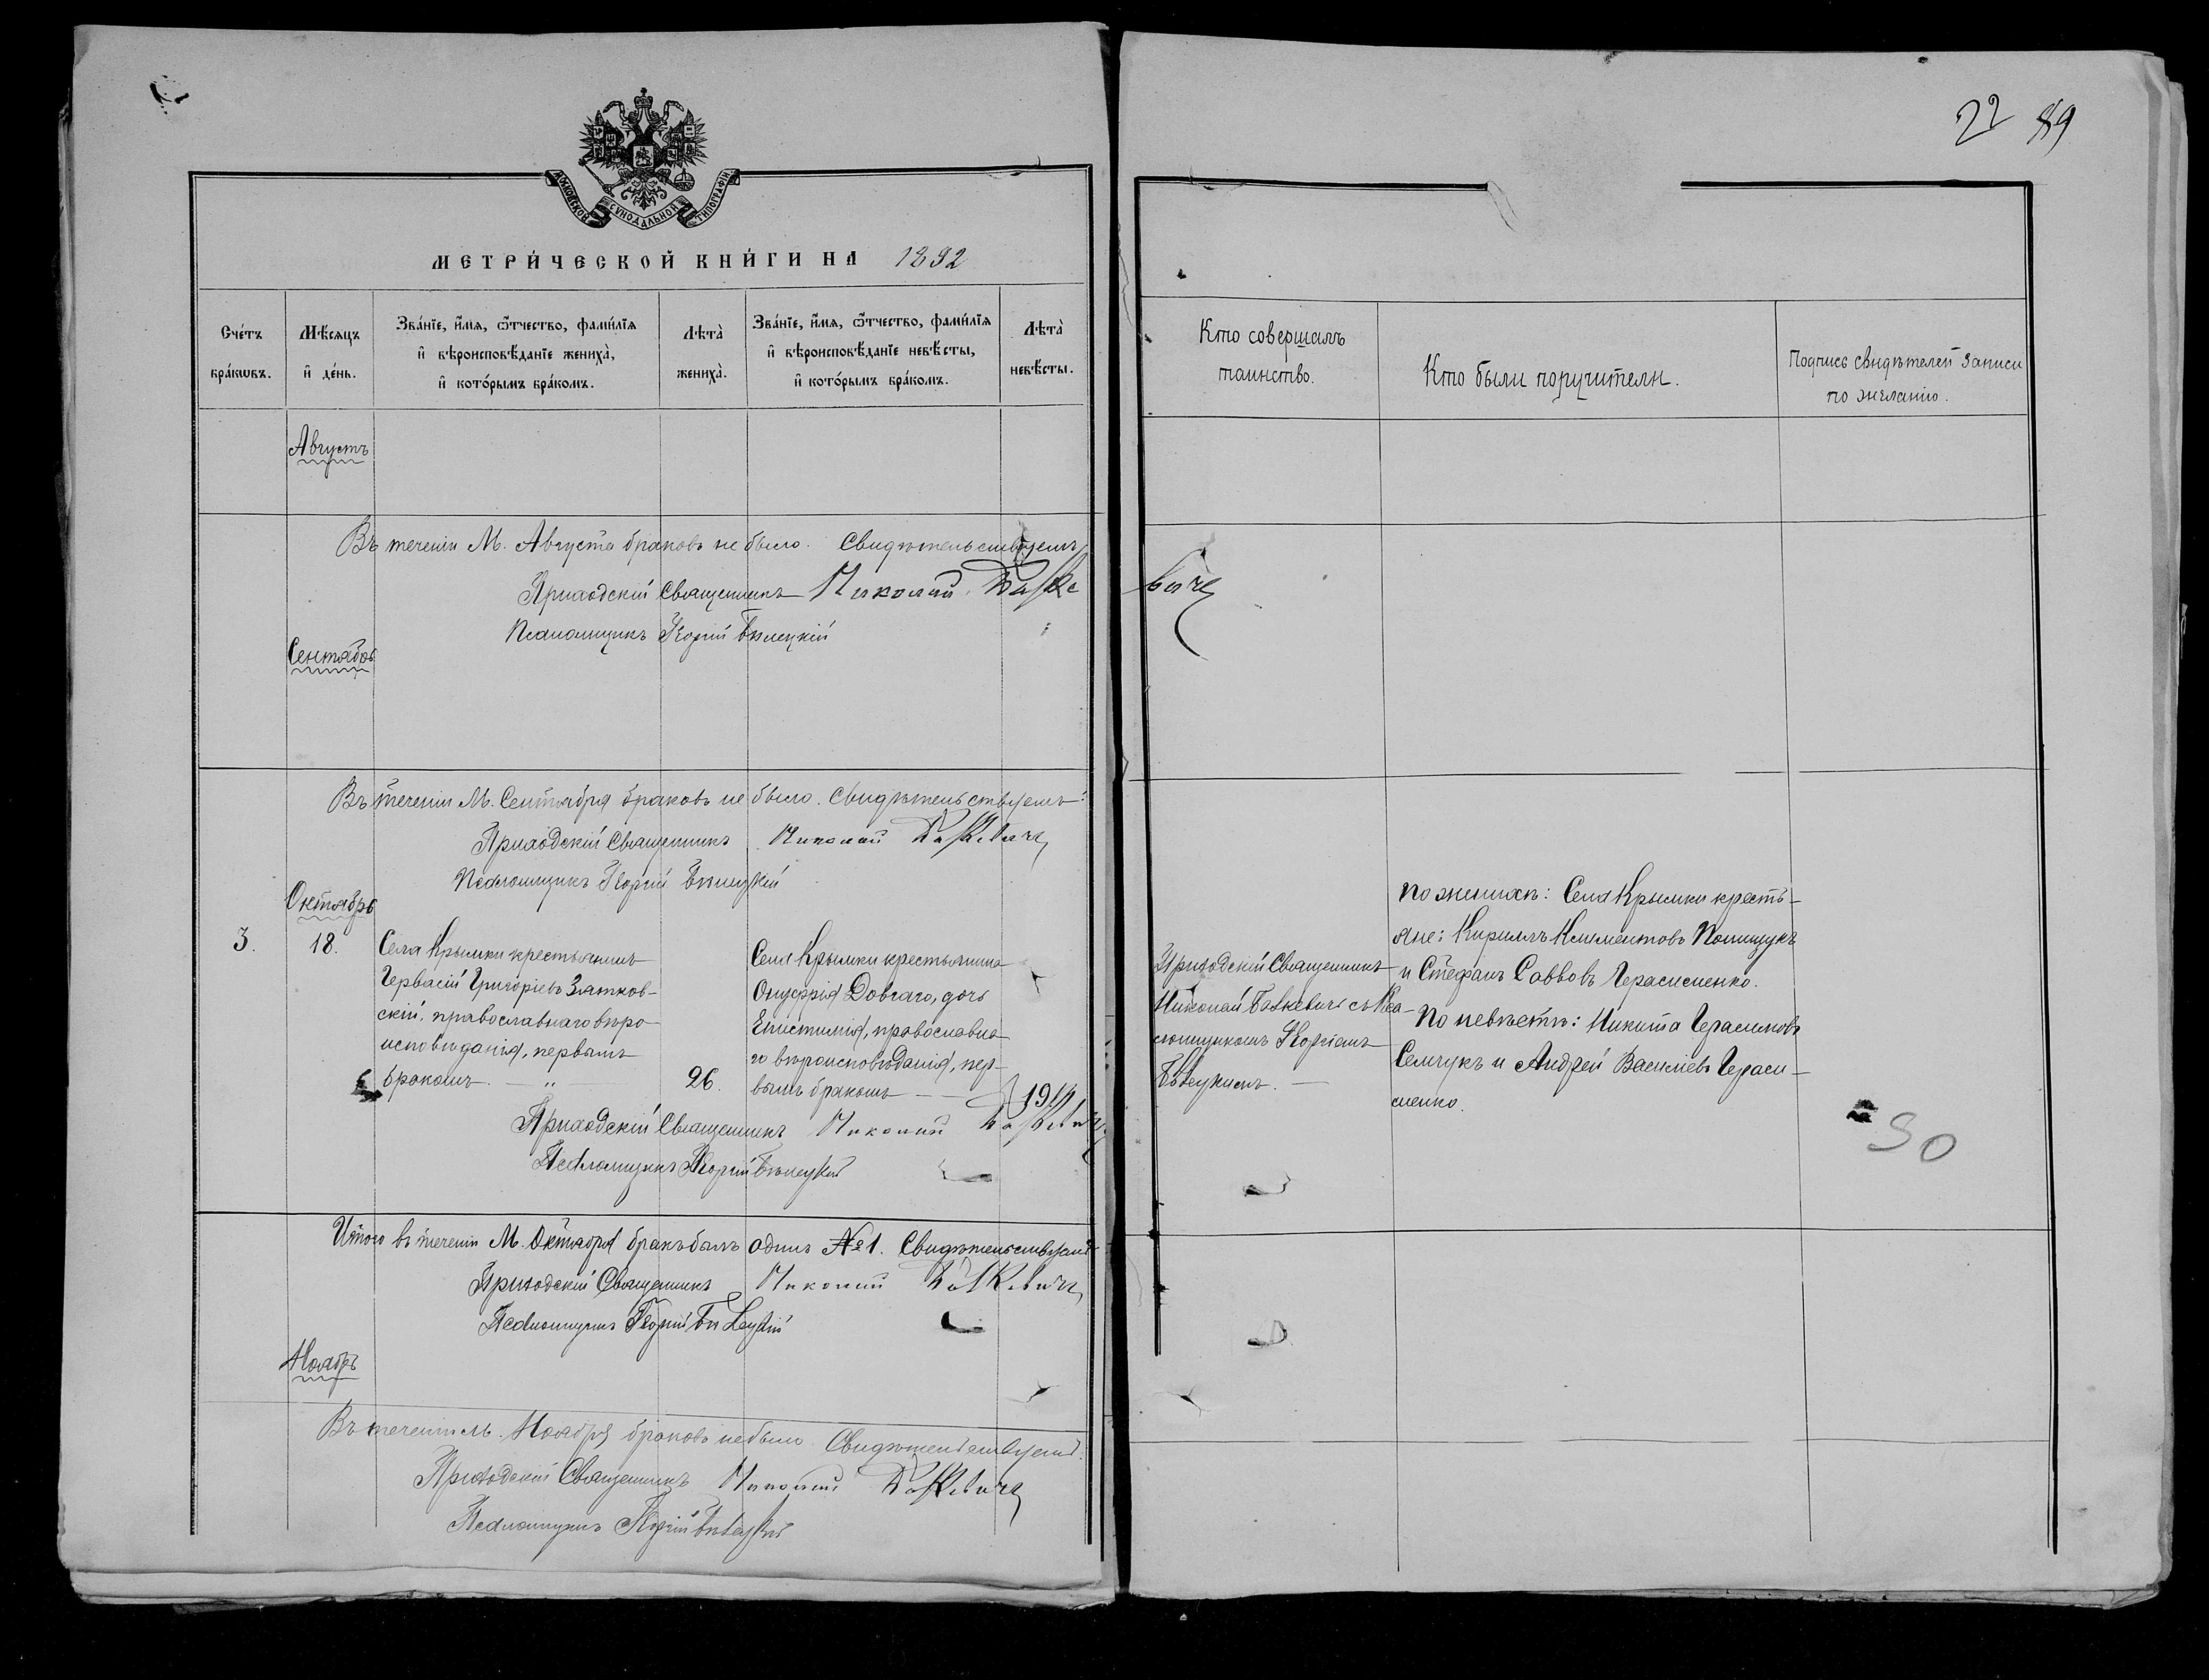 22 89
МОСКОВСКОЙ СѴНОДАЛЬНОЙ ТИПОГРАФІИ
МЕТРИ́ЧЕСКОЙ КНИ́ГИ НА 1892
Сче́тъ бра́кωвъ.
Мѣ́сяцъ и҆ де́нь.
Зва́нїе, и҆́мя, ѻ҆́тчество, фами́лїя
и҆ вѣроисповѣ́данїе жениха̀,
и҆ кото́рымъ бра́комъ.
Лѣта̀ жениха̀.
Зва́нїе, и҆́мя, ѻ҆́тчество, фами́лїя
и҆ вѣроисповѣ́данїе невѣ́сты,
и҆ кото́рымъ бра́комъ.
Лѣта̀ невѣ́сты.
Кто совершалъ
таинство.
Кто были поручители.
Подпись свидѣтелей записи
по желанію.
Августъ
Въ теченіи М. Августа браковъ не было. Свидѣтельствуемъ
Приходскій Священникъ Николай
Псаломщикъ Георгій Бѣлецкій
Сентябрь
Въ теченіи М. Сентября браковъ не было. Свидѣтельствуемъ:
Приходскій Священникъ Николай
Псаломщикъ Георгій Бѣлецкій
Октябрь
3.
18.
Села Крымки крестьянинъ
Гервасій Григоріевъ Златков-
скій, православнаго вѣро-
исповѣданія, первымъ
бракомъ. — „ —
26.
Села Крымки крестьянина
Онуфрія Довгаго, дочь
Епистимія, православна-
го вѣроисповѣданія, пер-
вымъ бракомъ —
Приходскій Священникъ
Николай съ Пса-
ломщикомъ Георгіемъ
Бѣлецкимъ. —
По женихѣ: Села Крымки кресть-
яне: Кириллъ Климентовъ Полищукъ
и Стефанъ Саввовъ Герасименко.
По невѣстѣ: Никита Герасимовъ
Семчукъ и Андрей Василіевъ Гераси-
менко.
Приходскій Священникъ Николай
Псаломщикъ Георгій Бѣлецкій
Итого въ теченіи М. Октября бракъ былъ одинъ № 1. Свидѣтельствуемъ
Приходскій Священникъ Николай
Псаломщикъ Георгій Бѣлецкій
Ноябрь
Въ теченіи м. Ноября браковъ не было. Свидѣтельствуемъ:
Приходскій Священникъ Николай
Псаломщикъ Георгій Бѣлецкій